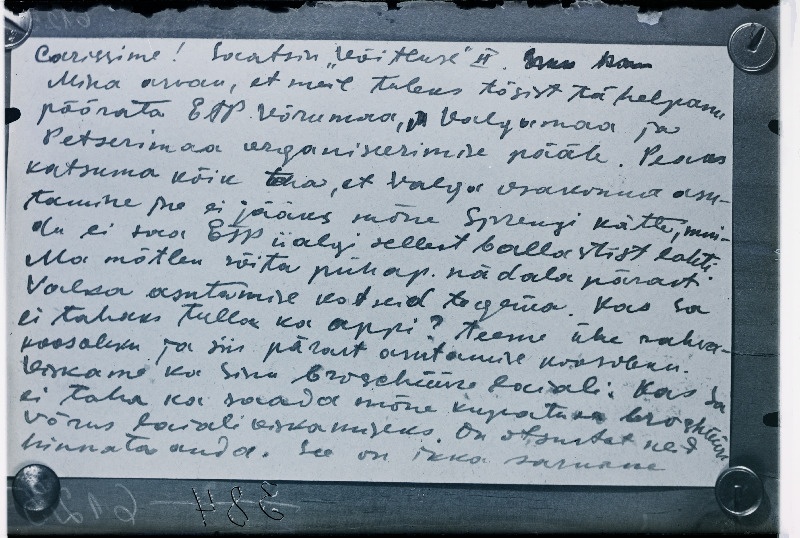 Carissime! Saatsin „Võitluse" II.
Mina arvan, et meil tuleks tõsist tähelpanu
pöörata ETP Võrumaa, Valgamaa ja
Petserimaa organiseerimise pääle. Peaks
katsuma kõik teha, et Valga osakonna asu-
tamine ei jääks mõne Sprengi kätte, mui-
du ei saa ETP iialgi sellest ballastist lahti.
Ma mõtlen sõita pühap. nädala pärast
Valka asutamise katseid tegema. Kas Sa
ei tahaks tulla ka appi? Teeme ühe rahva-
koosoleku ja siis pärast asutamise koosoleku.
Viskame ka Sinu broschüüre laiali. Kas Sa
ei taha ka saada mõne broshüüre
Võrus laiali viskamiseks. On otsustet neid
hinnata anda. See on ikka sarnane
384